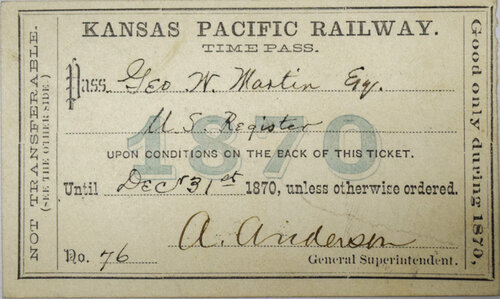 KANSAS PACIFIC RAILWAY.
TIME PASS.
Pass Geo W. Martin Esq.
U. S. Register
1870
UPON CONDITIONS ON THE BACK OF THIS TICKET.
Until Decr 31st 1870, unless otherwise ordered.
No. 76
A. Anderson
General Superintendent.
NOT TRANSFERABLE.
(SEE THE OTHER SIDE.)
Good only during 1870,